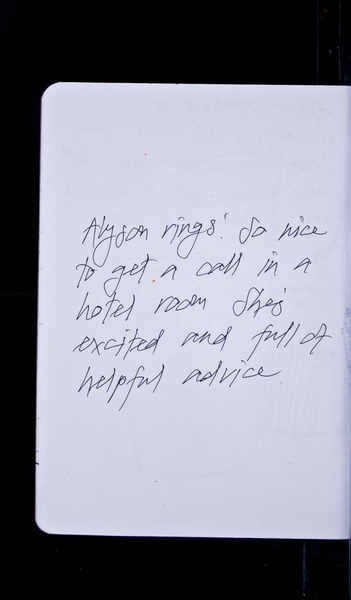 Alyson rings! So nice
to get a call in a
hotel room. She's
excited and full of
helpful advice.